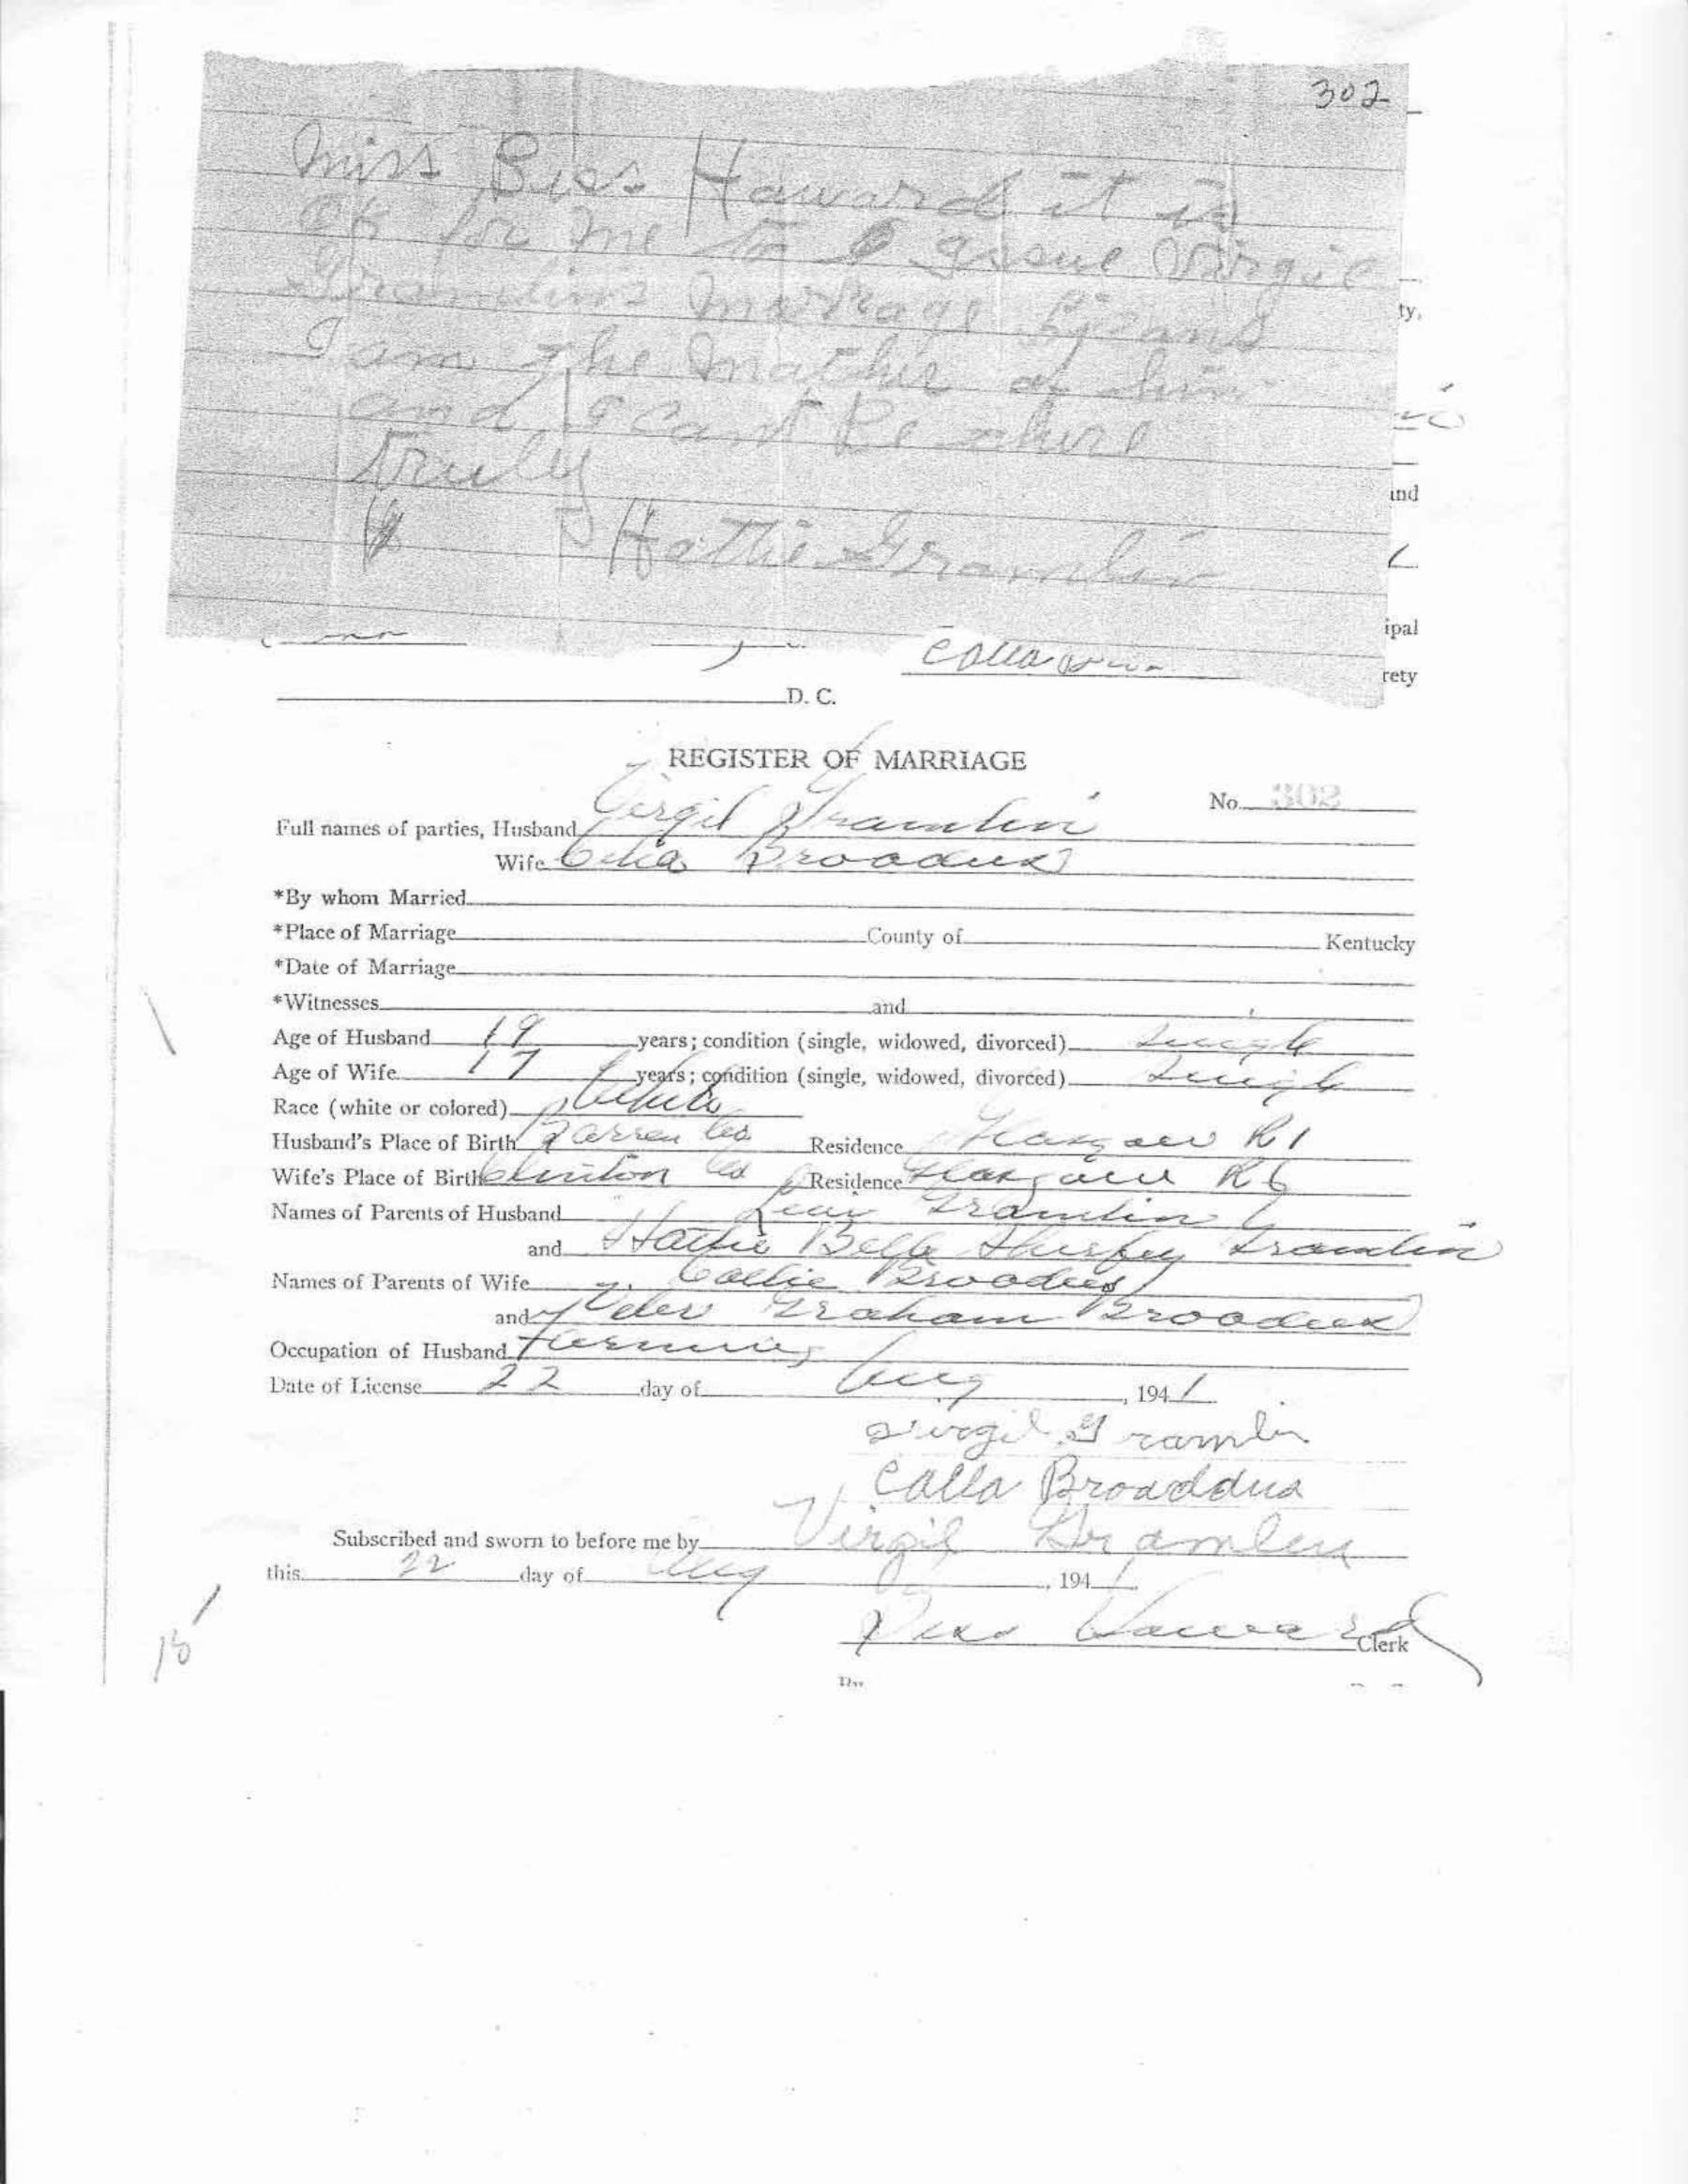 302
Miss Bess Howard it is
ok for me to issue Virgil
Gramlins marrage
I am the mother of him
and I cant be there
truly
Hattie Gramlin
ty,
and
ipal
rety
D. C.
REGISTER OF MARRIAGE
No. 302
Full names of parties, Husband Virgil Gramlin
Wife Broadus
*By whom Married
*Place of Marriage County of Kentucky
*Date of Marriage
*Witnesses and
Age of Husband 19 years; condition (single, widowed, divorced) Single
Age of Wife 17 years; condition (single, widowed, divorced) Single
Race (white or colored) White
Husband's Place of Birth Barren Co Residence Glasgow R1
Wife's Place of Birth Clinton Co Residence Glasgow R6
Names of Parents of Husband Gramlin
and Hattie Belle Gramlin
Names of Parents of Wife Callie Broadus
and Graham Broadus
Occupation of Husband Farming
Date of License 22 day of Aug, 1941
Virgil Gramlin
Calla Broaddus
Subscribed and sworn to before me by Virgil Gramlin
this 22 day of Aug, 1941
Bess Howard Clerk
15
By